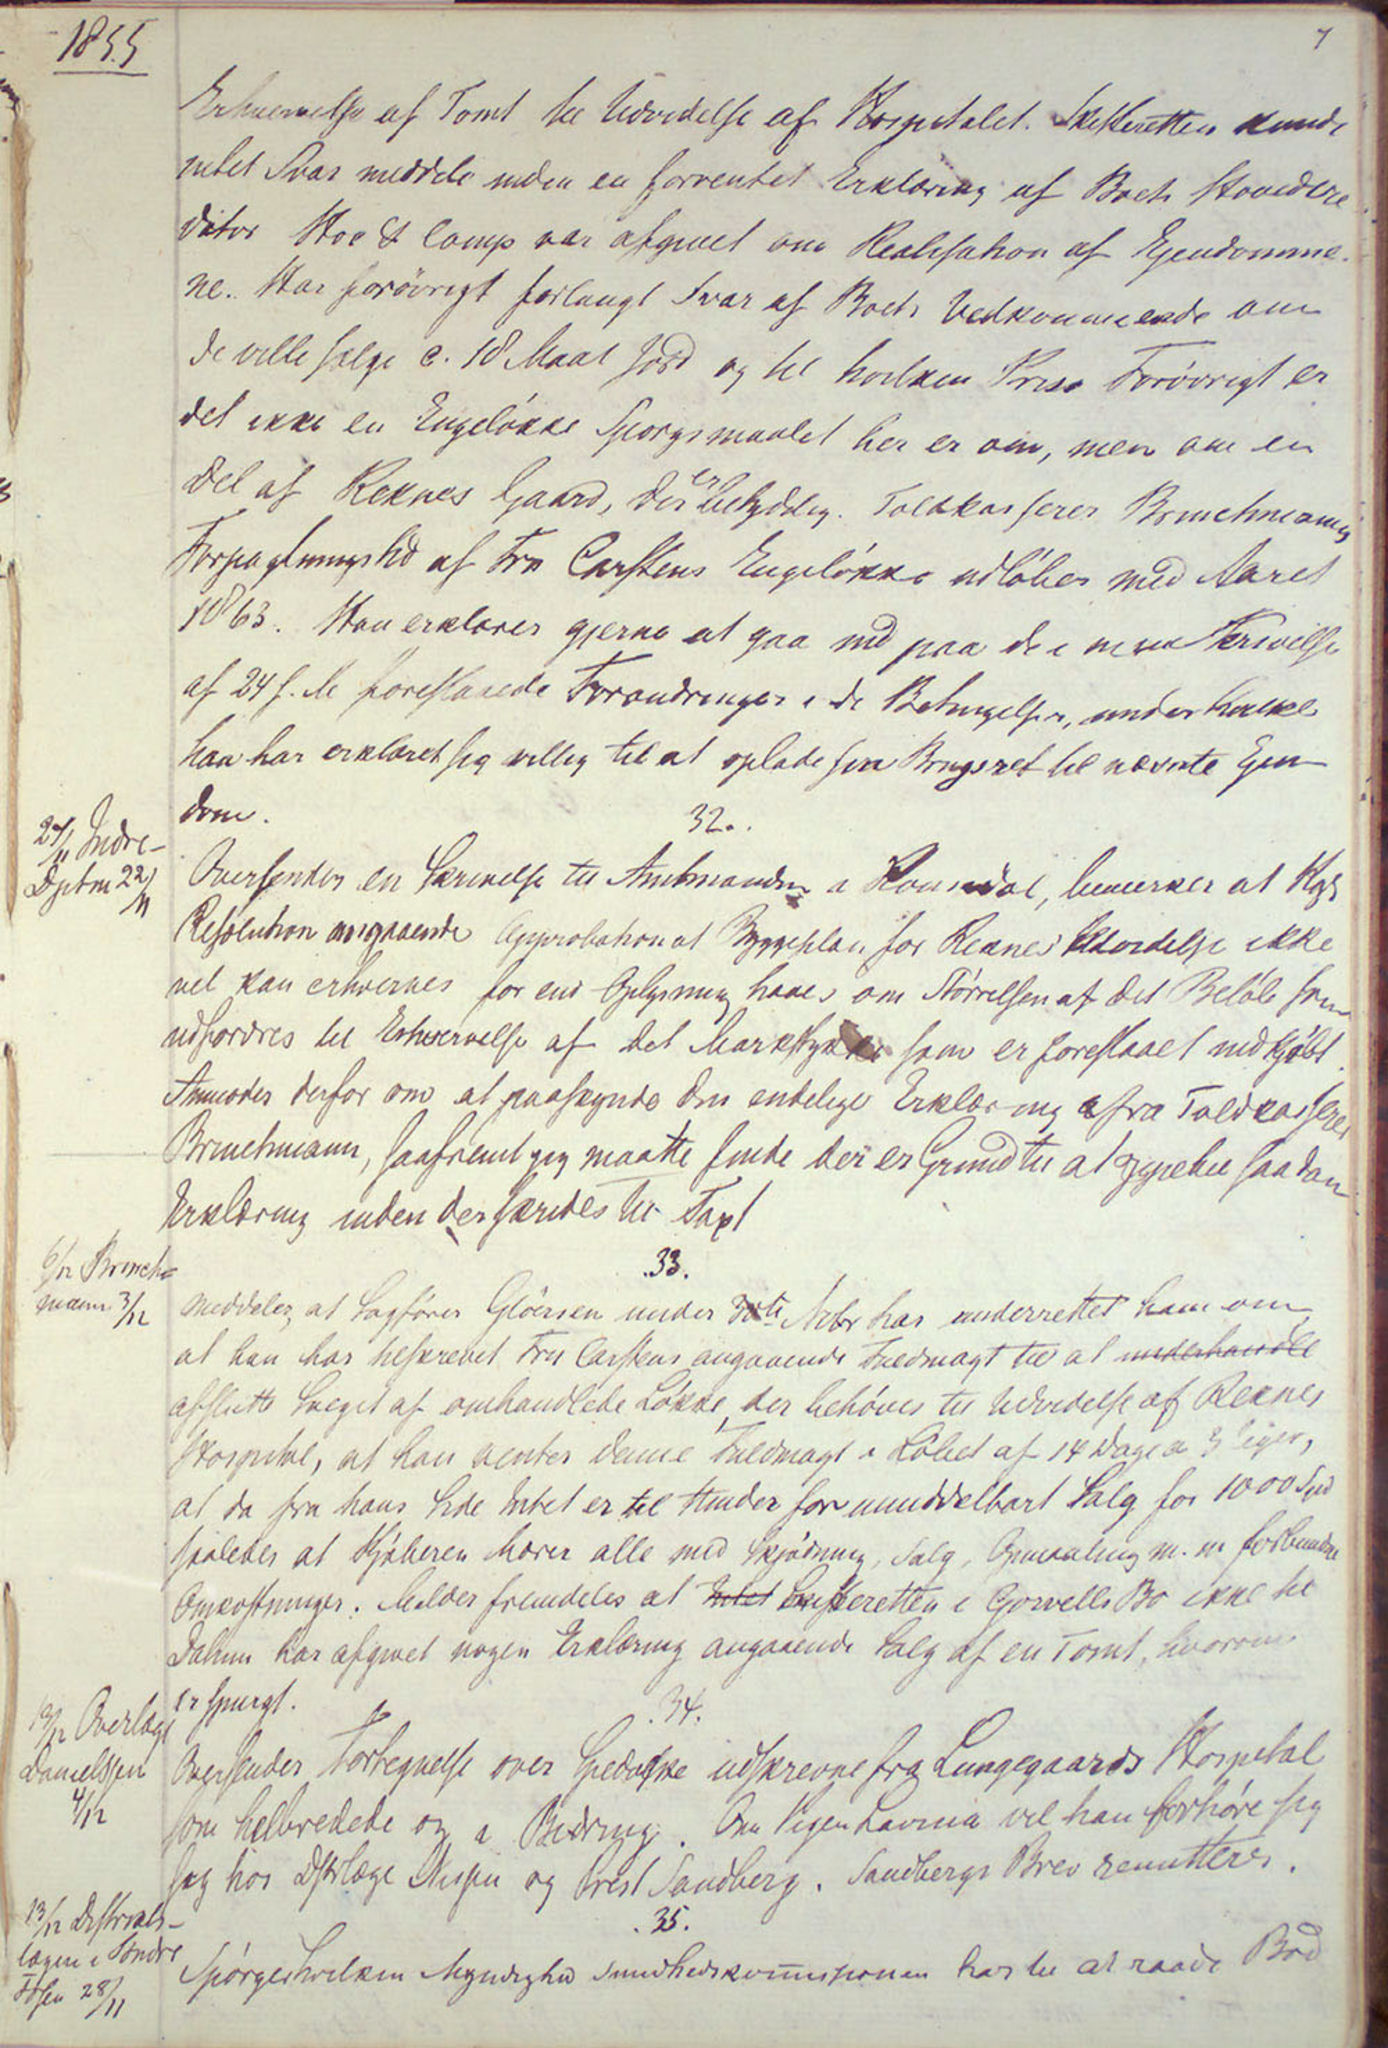 1855
7
Erhvervelse af Tomt til Udvidelse af Hospitalet. Skifteretten kunde
intet Svar meddele inden en forventet Erklæring af Boets Hovedcre
ditor Hoe & Comp var afgivet om Realisation af Ejendomme-
ne. Har forøvrigt forlangt Svar af Boets Vedkommende om
de ville sælge c. 18 Maal Jord og til hvilken Priis. Forøvrigt er
det ikke en Engeløkke Spørgsmaalet her er om, men om en
Del af Reknes Gaard, der er betydelig. Toldkasserer Brinchmanns
Forpagtningstid af Fru Carstens Engeløkke udløber med Aaret
1863. Han erklærer gjerne at gaa ind paa de i min Skrivelse
af 24 f. M foreslaaede Forandringer i de Betingelser, under hvilke
han har erklæret sig villig til at oplade sin Brugsret til nævnte Ejen
dom.
32.
27/11 Indre-
Dptm 22/11
Oversender en Skrivelse til Amtmanden i Romsdal, bemærker at Kgl
Resolution angaaende Approbation af Byggeplan for Reknes Udvidelse ikke
vel kan erhverves før end Oplysning haves om Størrelsen af det Beløb som
udfordres til Erhvervelse af det Markstykke som er foreslaaet indkjøbt.
Anmodes derfor om at paaskynde den endelige Erklæring fra Toldkasserer
Brinchmann, saafremt jeg maatte finde der er Grund til at oppebie saadan
Erklæring inden der skrides til Taxt
33.
6/12 Brinch-
mann 3/12
meddeler, at Sagfører Gløersen under 30te Novbr har underrettet ham om
at han har tilskrevet Fru Carstens angaaende Fuldmagt til at underhandle
afslutte Salget af omhandlede Løkke, der behøves til Udvidelse af Reknes
Hospital, at han venter denne Fuldmagt i Løbet af 14 Dage a 3 Uger,
at da fra hans Side Intet er til Hinder for umiddelbart Salg for 1000 Spd
saaledes at Kjøberen bærer alle med Skjødning, Salg, Opmaaling m. m forbundne
Omkostninger. Melder fremdeles at Intet Skifteretten i Gørvells Bo ikke til
Datum har afgivet nogen Erklæring angaaende Salg af en Tomt, hvorom
er spurgt.
34.
13/12 Overlæge
Danielssen
4/12
Oversender Fortegnelse over Spedalske udskrevne fra Lungegaards Hospital
som helbredede og i Bedring. Om Pigen Lavinia vil han forhøre sig
sig hos Dstrlæge og Prest Sandberg. Sandbergs Brev remitteres.
35.
13/12 Distrikts-
lægen i Søndre
Fosen 28/11
Spørger hvilken Myndighed Sundhedskommissionen har til at raade Bod